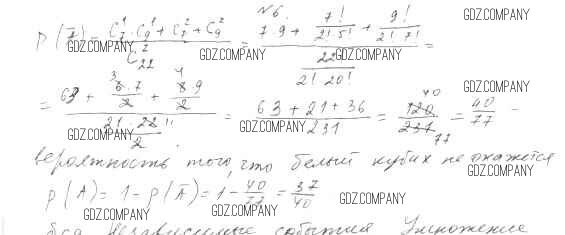 №6.
P(Ā) = (C₇¹·C₉¹ + C₇² + C₉²) / C₂₂² = (7·9 + 7!/(2!·5!) + 9!/(2!·7!)) / (22!/(2!·20!)) =
= (63 + 6·7/2 + 8·9/2) / (21·22/2) = (63+21+36)/231 = 120/231 = 40/77 –
вероятность того, что белый кубик не окажется
P(A) = 1 – P(Ā) = 1 – 40/77 = 37/40
Независимые события Умножение
GDZ.COMPANY
GDZ.COMPANY
GDZ.COMPANY
GDZ.COMPANY
GDZ.COMPANY
GDZ.COMPANY
GDZ.COMPANY
GDZ.COMPANY
GDZ.COMPANY
GDZ.COMPANY
GDZ.COMPANY